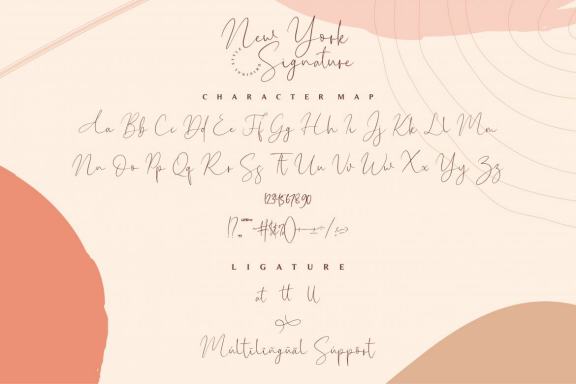 New York
Signature
CHARACTER MAP
Aa Bb Cc Dd Ee Ff Gg Hh Ii Jj Kk Ll Mm
Nn Oo Pp Qq Rr Ss Tt Uu Vv Ww Xx Yy Zz
1234567890
LIGATURE
at tt ll
Multilingual Support